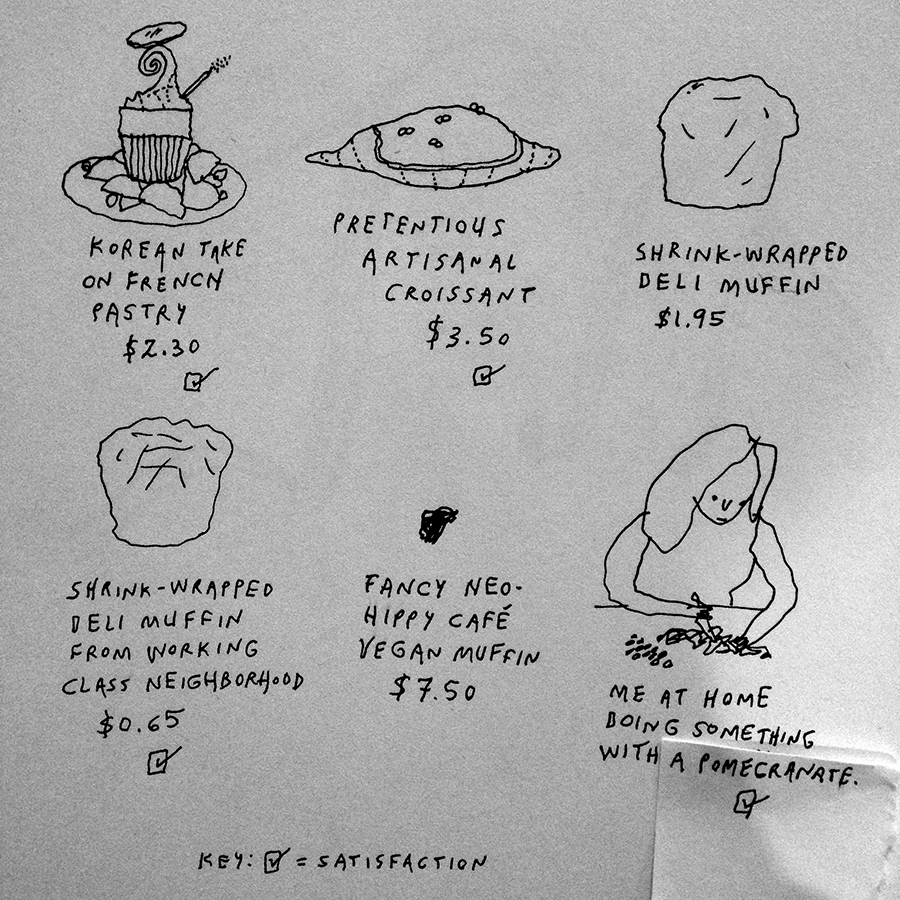 KOREAN TAKE
ON FRENCH
PASTRY
$2.30
PRETENTIOUS
ARTISANAL
CROISSANT
$3.50
SHRINK-WRAPPED
DELI MUFFIN
$1.95
SHRINK-WRAPPED
DELI MUFFIN
FROM WORKING
CLASS NEIGHBORHOOD
$0.65
FANCY NEO-
HIPPY CAFÉ
VEGAN MUFFIN
$7.50
ME AT HOME
DOING SOMETHING
WITH A POMEGRANATE.
KEY: ☑ = SATISFACTION